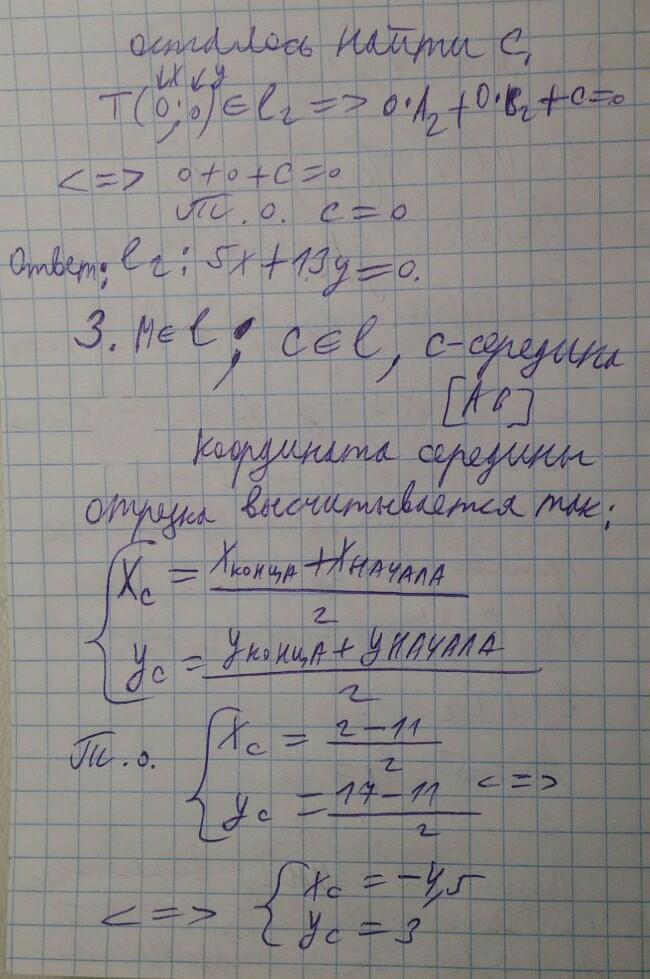 осталось найти C,
↓x ↓y
T(0;0) ∈ l₂ => 0·A₂+0·B₂+C=0
<=> 0+0+C=0
Т.о. C=0
Ответ: l₂: 5x+13y=0.
3. M∈l; C∈l, C-середина
[AB]
Координата середины
отрезка высчитывается так:
{ Xc = (Xконца+Xначала)/2
yc = (yконца+yначала)/2
Т.о. { Xc = (2-11)/2
yc = (17-11)/2 <=>
<=> { Xc = -4,5
yc = 3